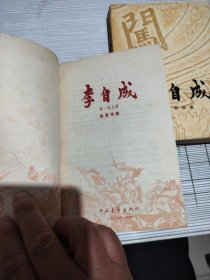 李自成
第一卷上册
姚雪垠著
中国青年出版社
闯
自成